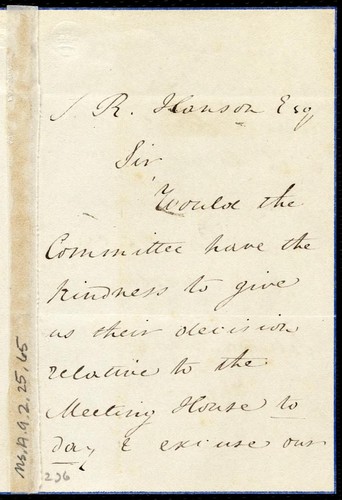 J. R. Hanson Esq
Sir,
Would the
Committee have the
kindness to give
us their decision
relative to the
Meeting House to
day & excuse our
Ms.A.9.2.25,65
226